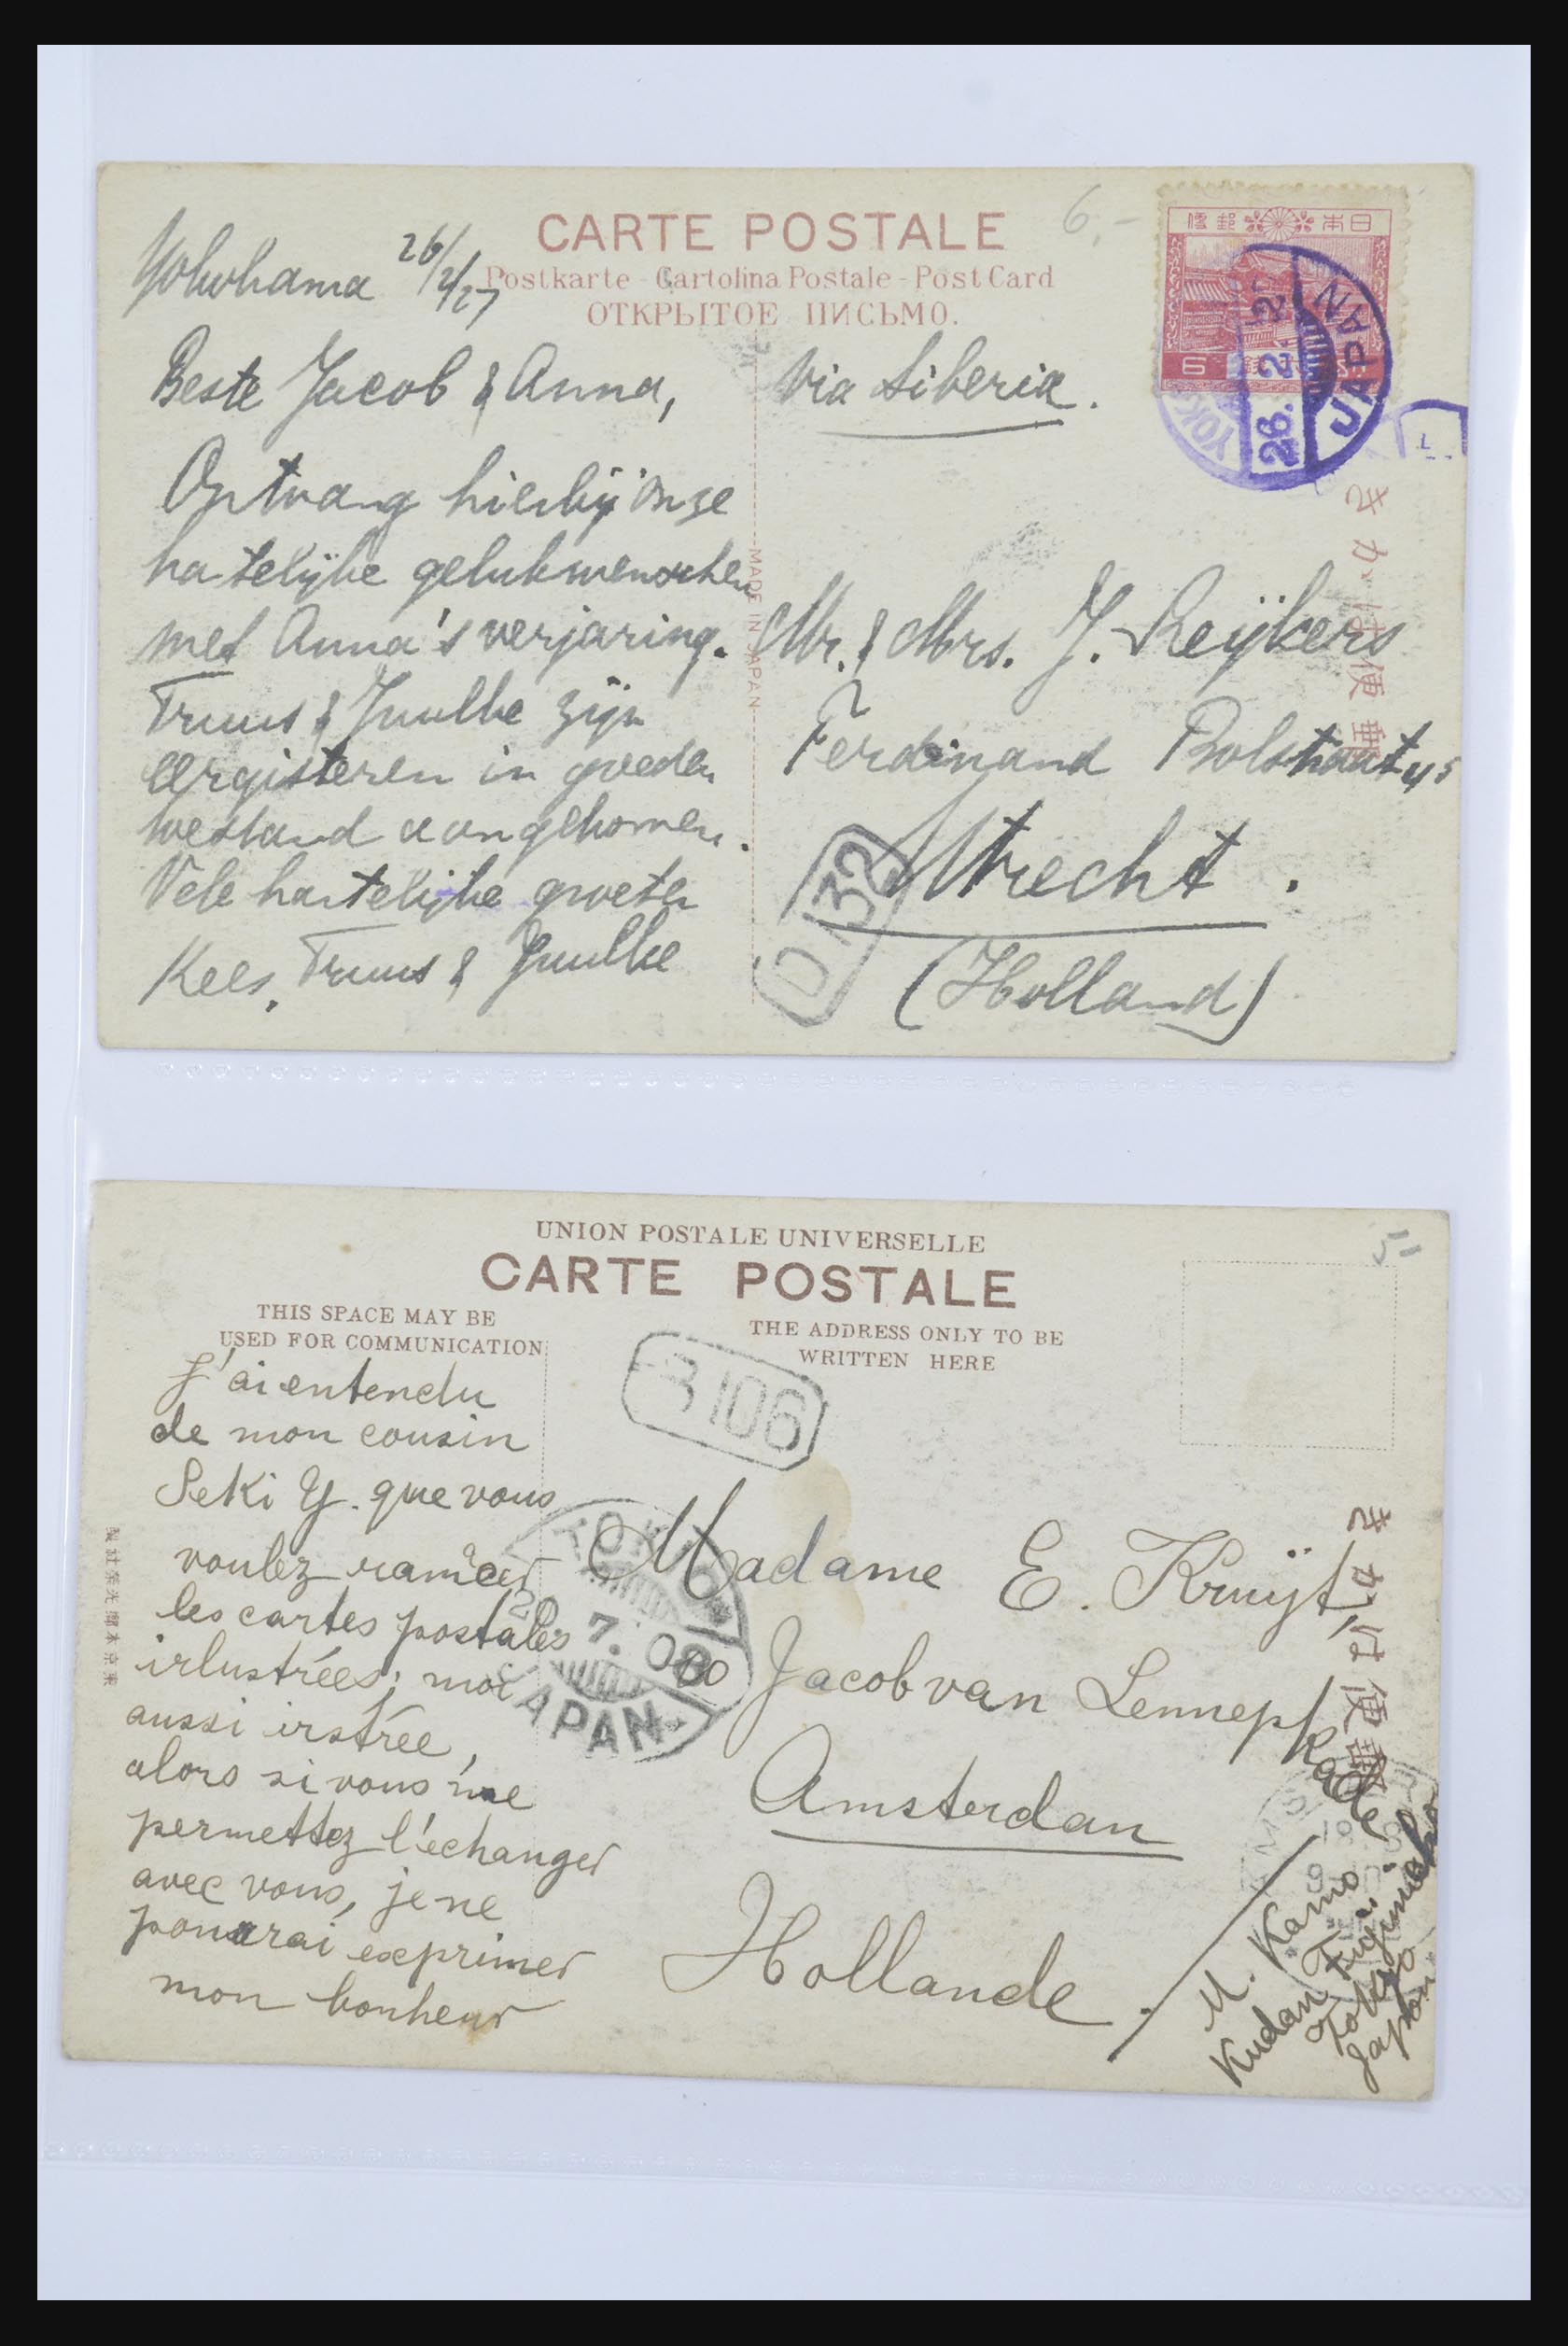 CARTE POSTALE
Postkarte - Cartolina Postale - Post Card
ОТКРЫТОЕ ПИСЬМО.
6,-
日本郵便
6
26. 2. 2
JAPAN
YOK
Yokohama 26/2/27
Beste Jacob & Anna,
Ontvang hierbij onze
hartelijke gelukwenschen
met Anna's verjaring.
Truus & Juulke zijn
eergisteren in goeden
westand aangekomen.
Vele hartelijke groeten
Kees, Truus & Juulke
MADE IN JAPAN
Via Siberia.
Mr. & Mrs. J. Reijkers
Ferdinand Bolstraat 45
Utrecht.
(Holland)
D 132
きかは便郵
UNION POSTALE UNIVERSELLE
CARTE POSTALE
5-
THIS SPACE MAY BE
USED FOR COMMUNICATION
THE ADDRESS ONLY TO BE
WRITTEN HERE
J'ai entendu
de mon cousin
Seki Y. que vous
voulez
les cartes postales
irlustrées; moi
aussi
alors si vous me
permettez l'échanger
avec vous, je ne
pourrai exprimer
mon bonheur
3106
TOKIO
7. 08
JAPAN
Madame E. Kruijt,
Jacob van Lennepkade
Amsterdan
Hollande.
M. Kamo
Kudan
Tokyo
Japon
きかは便郵